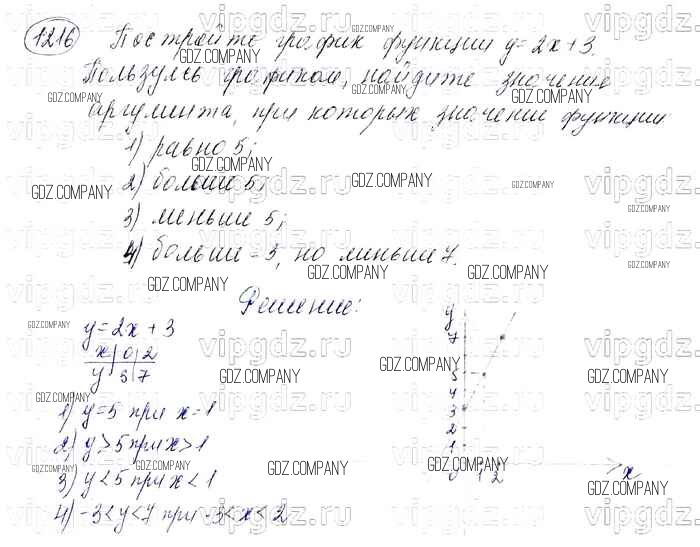 1216 Постройте график функции y=2x+3.
Пользуясь графиком, найдите значения
аргумента, при которых значение функции
1) равно 5;
2) больше 5;
3) меньше 5;
4) больше -3, но меньше 7.
Решение:
y=2x+3
x 0 2
y 3 7
1) y=5 при x=1
2) y>5 при x>1
3) y<5 при x<1
4) -3<y<7 при -3<x<2
y
7
5
4
3
2
1
0 1 2 x
vipgdz.ru
GDZ.COMPANY